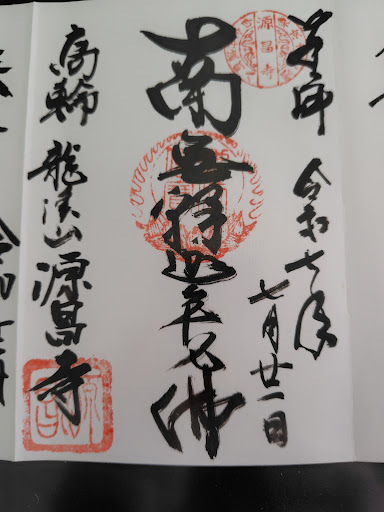 奉拝 令和七年
七月廿一日
源昌寺
南無釋迦牟尼佛
高輪 龍渓山 源昌寺